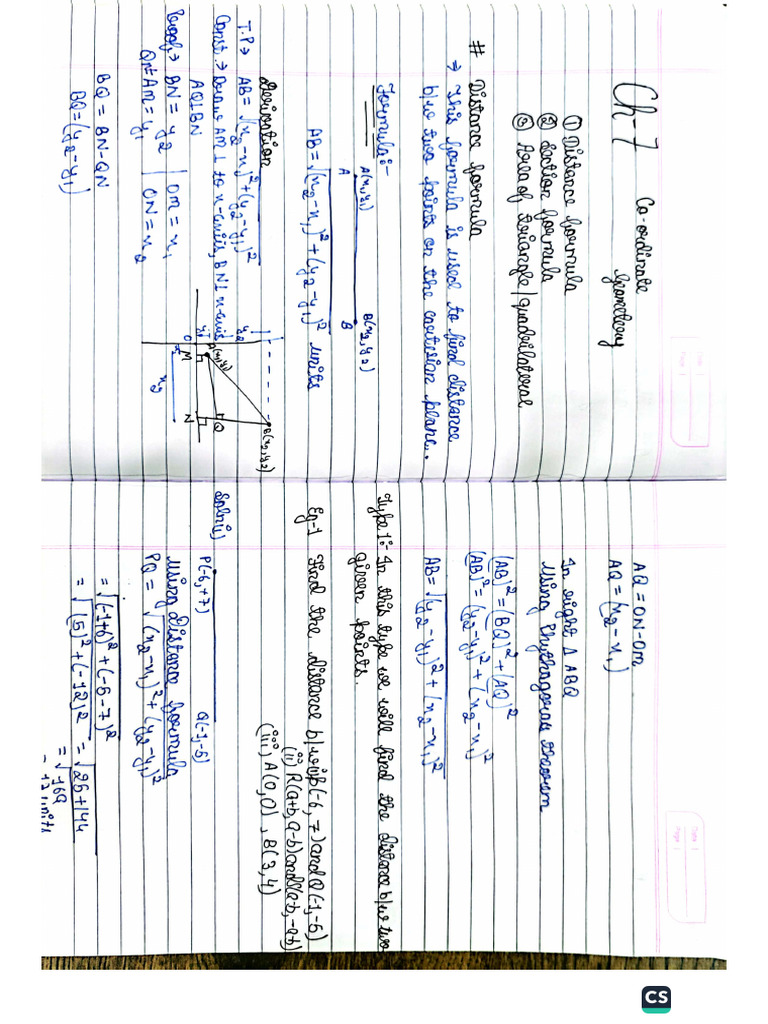 Ch-7 Co-ordinate
geometry
① Distance formula
② Section formula
③ Area of triangle/quadrilateral
# Distance formula
→ This formula is used to find distance
b/w two points on the cartesian plane..
Formula:-
A(x₁,y₁) B(x₂,y₂)
A B
AB=√(x₂-x₁)²+(y₂-y₁)² units
Derivation
T.P→ AB=√(x₂-x₁)²+(y₂-y₁)²
Const.→ Draw AM⊥ to x-axis, BN⊥ x-axis
AQ⊥BN
Proof→ BN=y₂ | OM=x₁
QN=AM=y₁ | ON=x₂
BQ = BN-QN
BQ=(y₂-y₁)
y₂
y₁
B(x₂,y₂)
A(x₁,y₁)
Q
O
M
N
x₂
AQ=ON-OM
AQ=(x₂-x₁)
In right Δ ABQ
Using Phythagoras theorem
(AB)²=(BQ)²+(AQ)²
(AB)²=(y₂-y₁)²+(x₂-x₁)²
AB=√(y₂-y₁)²+(x₂-x₁)²
Type 1:- In this type we will find the distance b/w two
given points.
Eg-1 Find the distance b/w (i)P(-6,7)and Q(-1,-5)
(ii) R(a+b,a-b)and S(a-b,-a-b)
(iii) A(0,0), B(3,4)
Soln(i) P(-6,+7) Q(-1,-5)
Using Distance formula
PQ = √(x₂-x₁)²+(y₂-y₁)²
=√(-1+6)²+(-5-7)²
=√(5)²+(-12)² =√25+144
=√169
= 13 units
Date
Page
Date
Page
CS